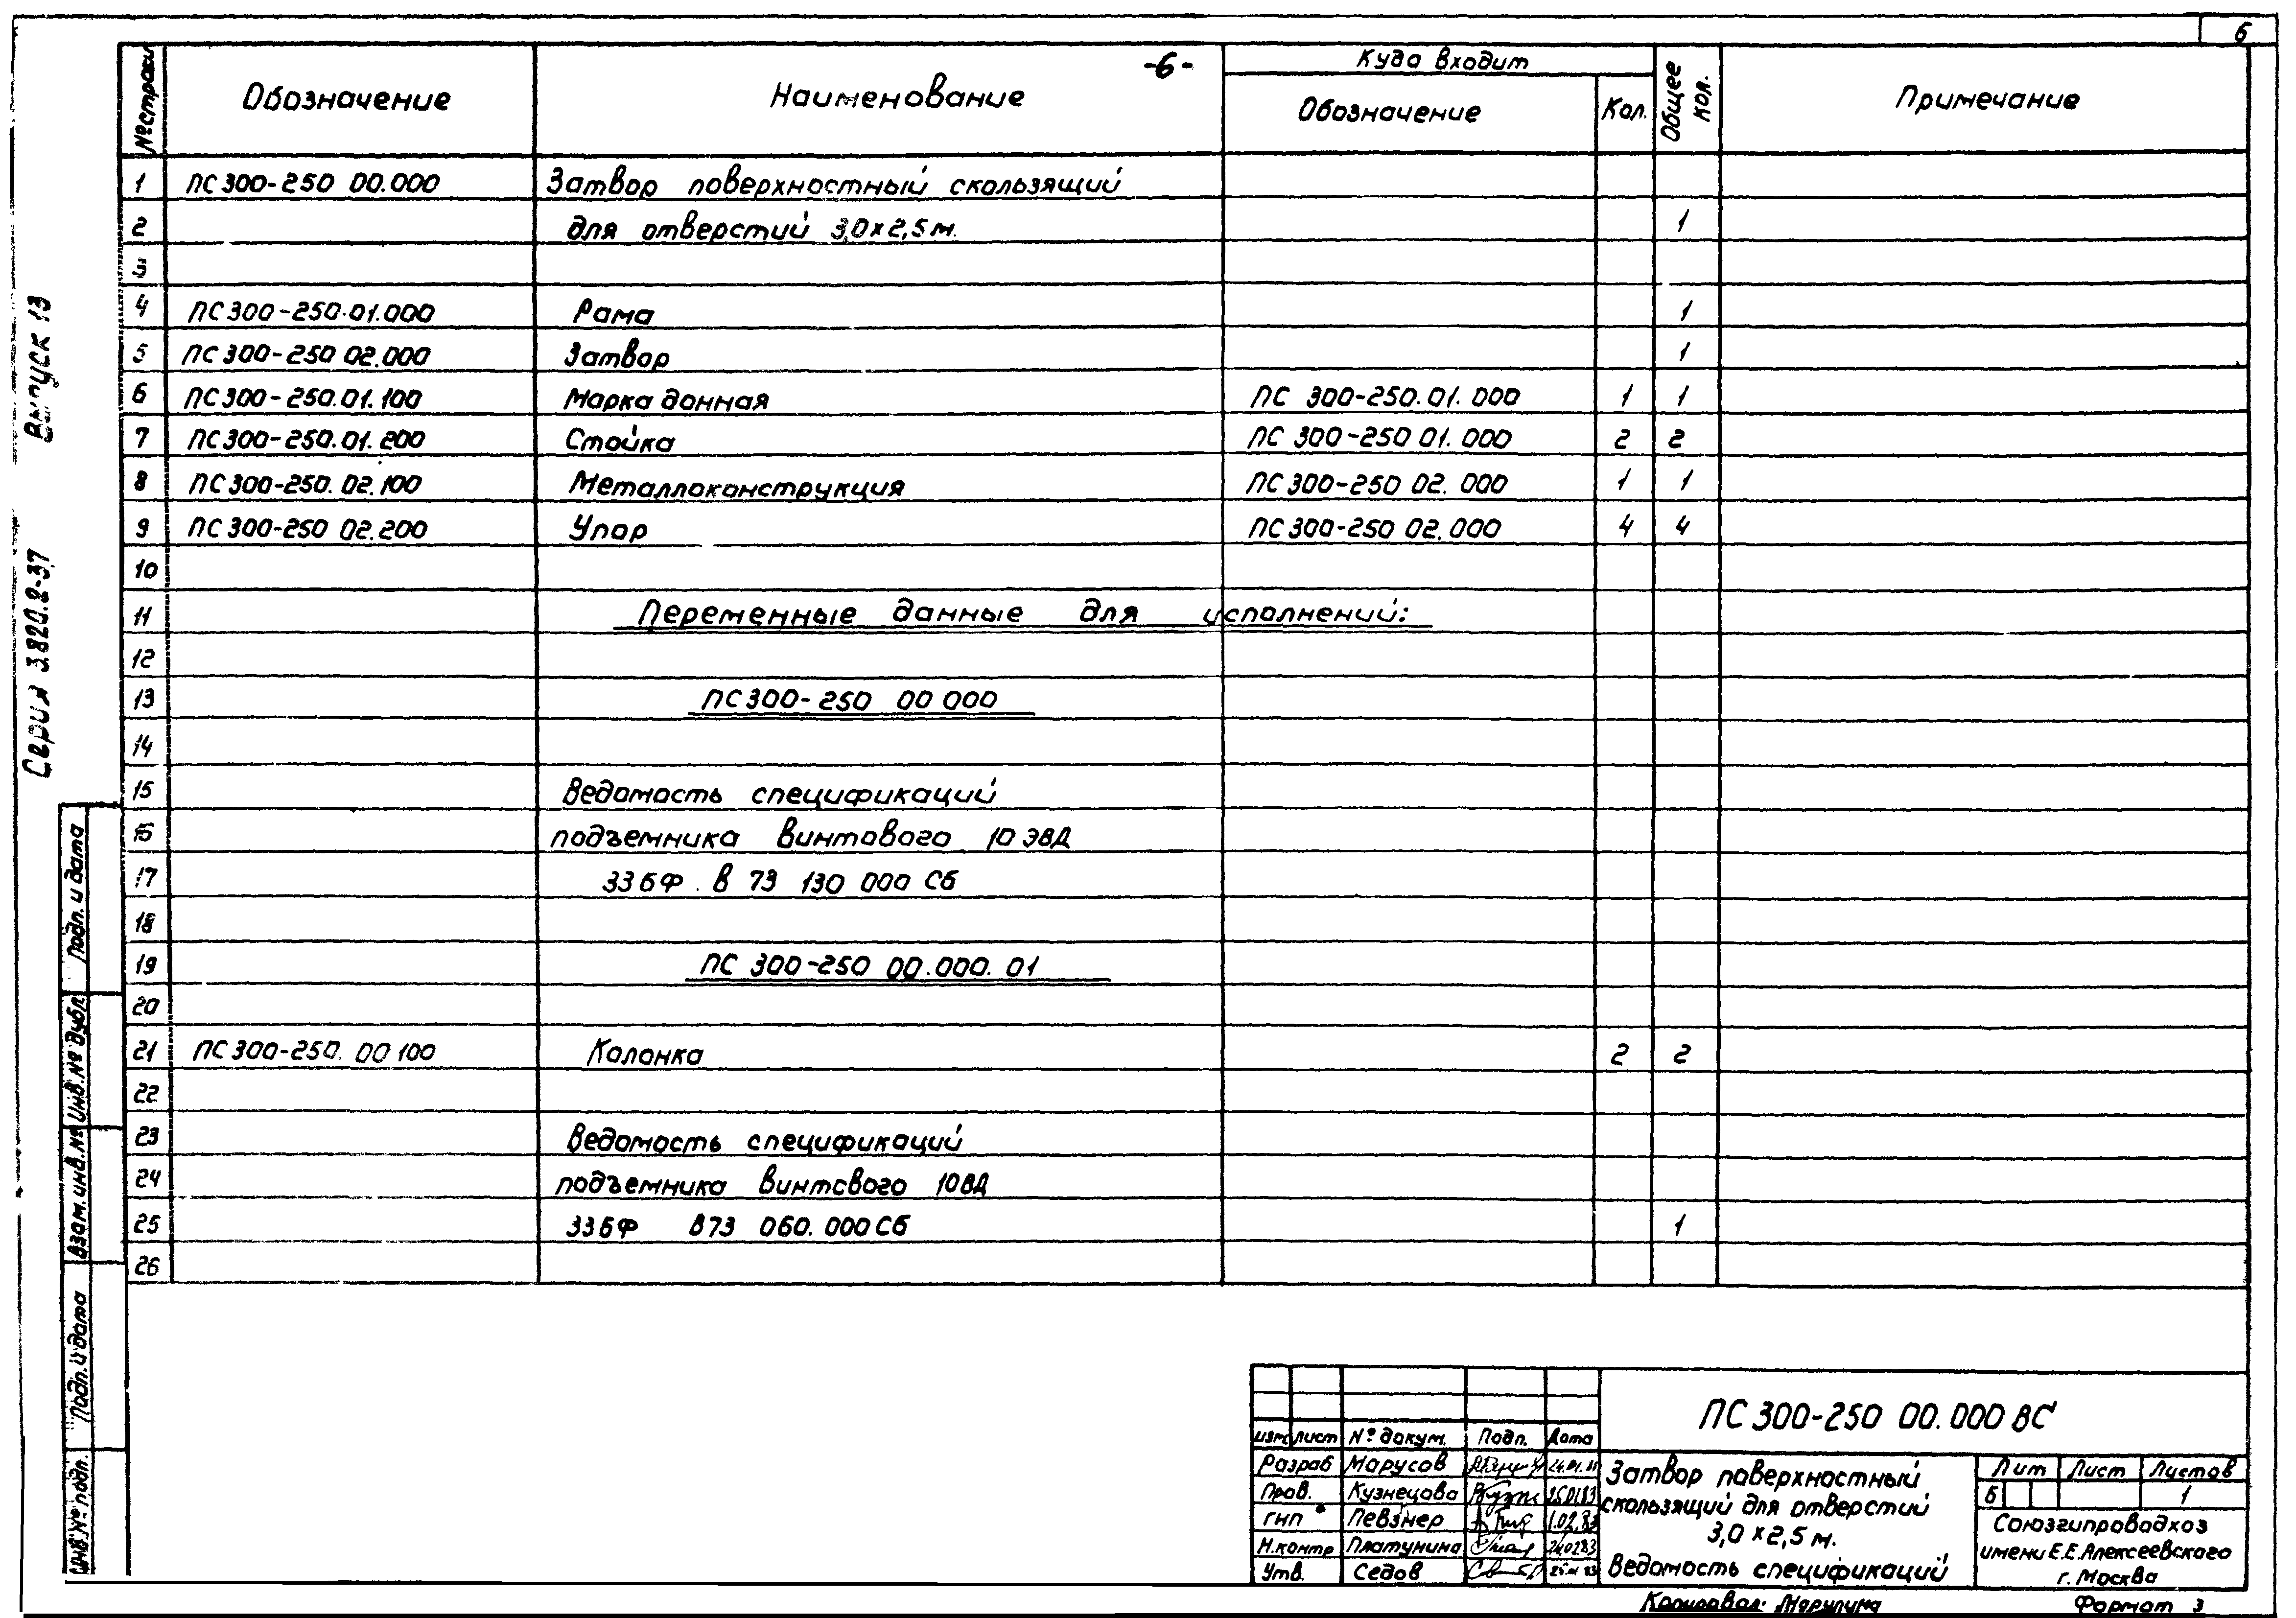 6
-6-
№ строки Обозначение Наименование Куда входит Общее кол. Примечание
Обозначение Кол.
1 ПС300-250 00.000 Затвор поверхностный скользящий
2 для отверстий 3,0×2,5м. 1
3
4 ПС300-250.01.000 Рама 1
5 ПС300-250 02.000 Затвор 1
6 ПС300-250.01.100 Марка донная ПС 300-250.01.000 1 1
7 ПС300-250.01.200 Стойка ПС 300-250 01.000 2 2
8 ПС300-250.02.100 Металлоконструкция ПС300-250 02.000 1 1
9 ПС300-250 02.200 Упор ПС300-250 02.000 4 4
10
11 Переменные данные для исполнений:
12
13 ПС300-250 00 000
14
15 Ведомость спецификаций
16 подъемника винтового 10 ЭВД
17 33бФ. В 73 130 000 Сб
18
19 ПС 300-250 00.000.01
20
21 ПС300-250. 00 100 Колонка 2 2
22
23 Ведомость спецификаций
24 подъемника винтового 10ВД
25 33бФ В73 060.000Сб 1
26
Серия 3.820.2-37 Выпуск 13
Подп. и дата
Инв.№ дубл.
Взам.инв.№
Подп. и дата
Инв.№ подл.
ПС300-250 00.000 ВС
изм лист № докум. Подп. Дата
Разраб Марусов
Пров. Кузнецова
ГНП Певзнер 1.02.83
Н.контр Платунина
Утв. Седов
Затвор поверхностный
скользящий для отверстий
3,0×2,5м.
Ведомость спецификаций
Лит Лист Листов
Б 1
Союзгипроводхоз
имени Е.Е.Алексеевского
г. Москва
Копировал: Формат 3